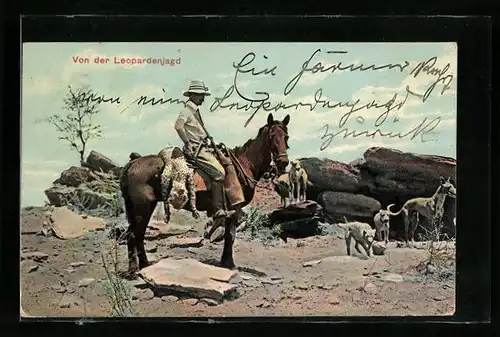 Von der Leopardenjagd
Ein Farmer
von einer Leopardenjagd
zurück